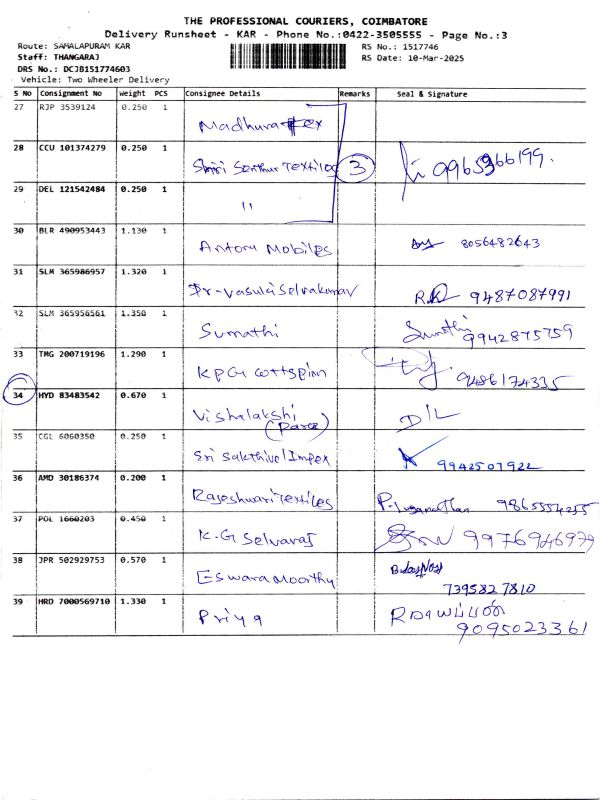 THE PROFESSIONAL COURIERS, COIMBATORE
Delivery Runsheet - KAR - Phone No.:0422-3505555 - Page No.:3
Route: SAMALAPURAM KAR RS No.: 1517746
Staff: THANGARAJ RS Date: 10-Mar-2025
DRS No.: DCJB151774603
Vehicle: Two Wheeler Delivery
S No Consignment No Weight PCS Consignee Details Remarks Seal & Signature
27 RJP 3539124 0.250 1 Madhura Tex
28 CCU 101374279 0.250 1 Shri Senthur Textiles 3
29 DEL 121542484 0.250 1 "
30 BLR 490953443 1.130 1 Antony Mobiles 8056482643
31 SLM 365986957 1.320 1 Dr-Vasuki Selvakumar 9487087991
32 SLM 365956561 1.350 1 Sumathi Sumathi 9942875759
33 TMG 200719196 1.290 1 KPG Cottspinn 9486174335
34 HYD 83483542 0.670 1 Vishalakshi D/L
35 CGL 6060350 0.250 1 Sri Sakthivel Impex 9942507922
36 AMD 30186374 0.200 1 Rajeshwari Textiles 9865554255
37 POL 1660203 0.450 1 K.G Selvaraj 9976946979
38 JPR 502929753 0.570 1 Eswaramoorthy 7395827810
39 HRD 7000569710 1.330 1 Priya 9095023361